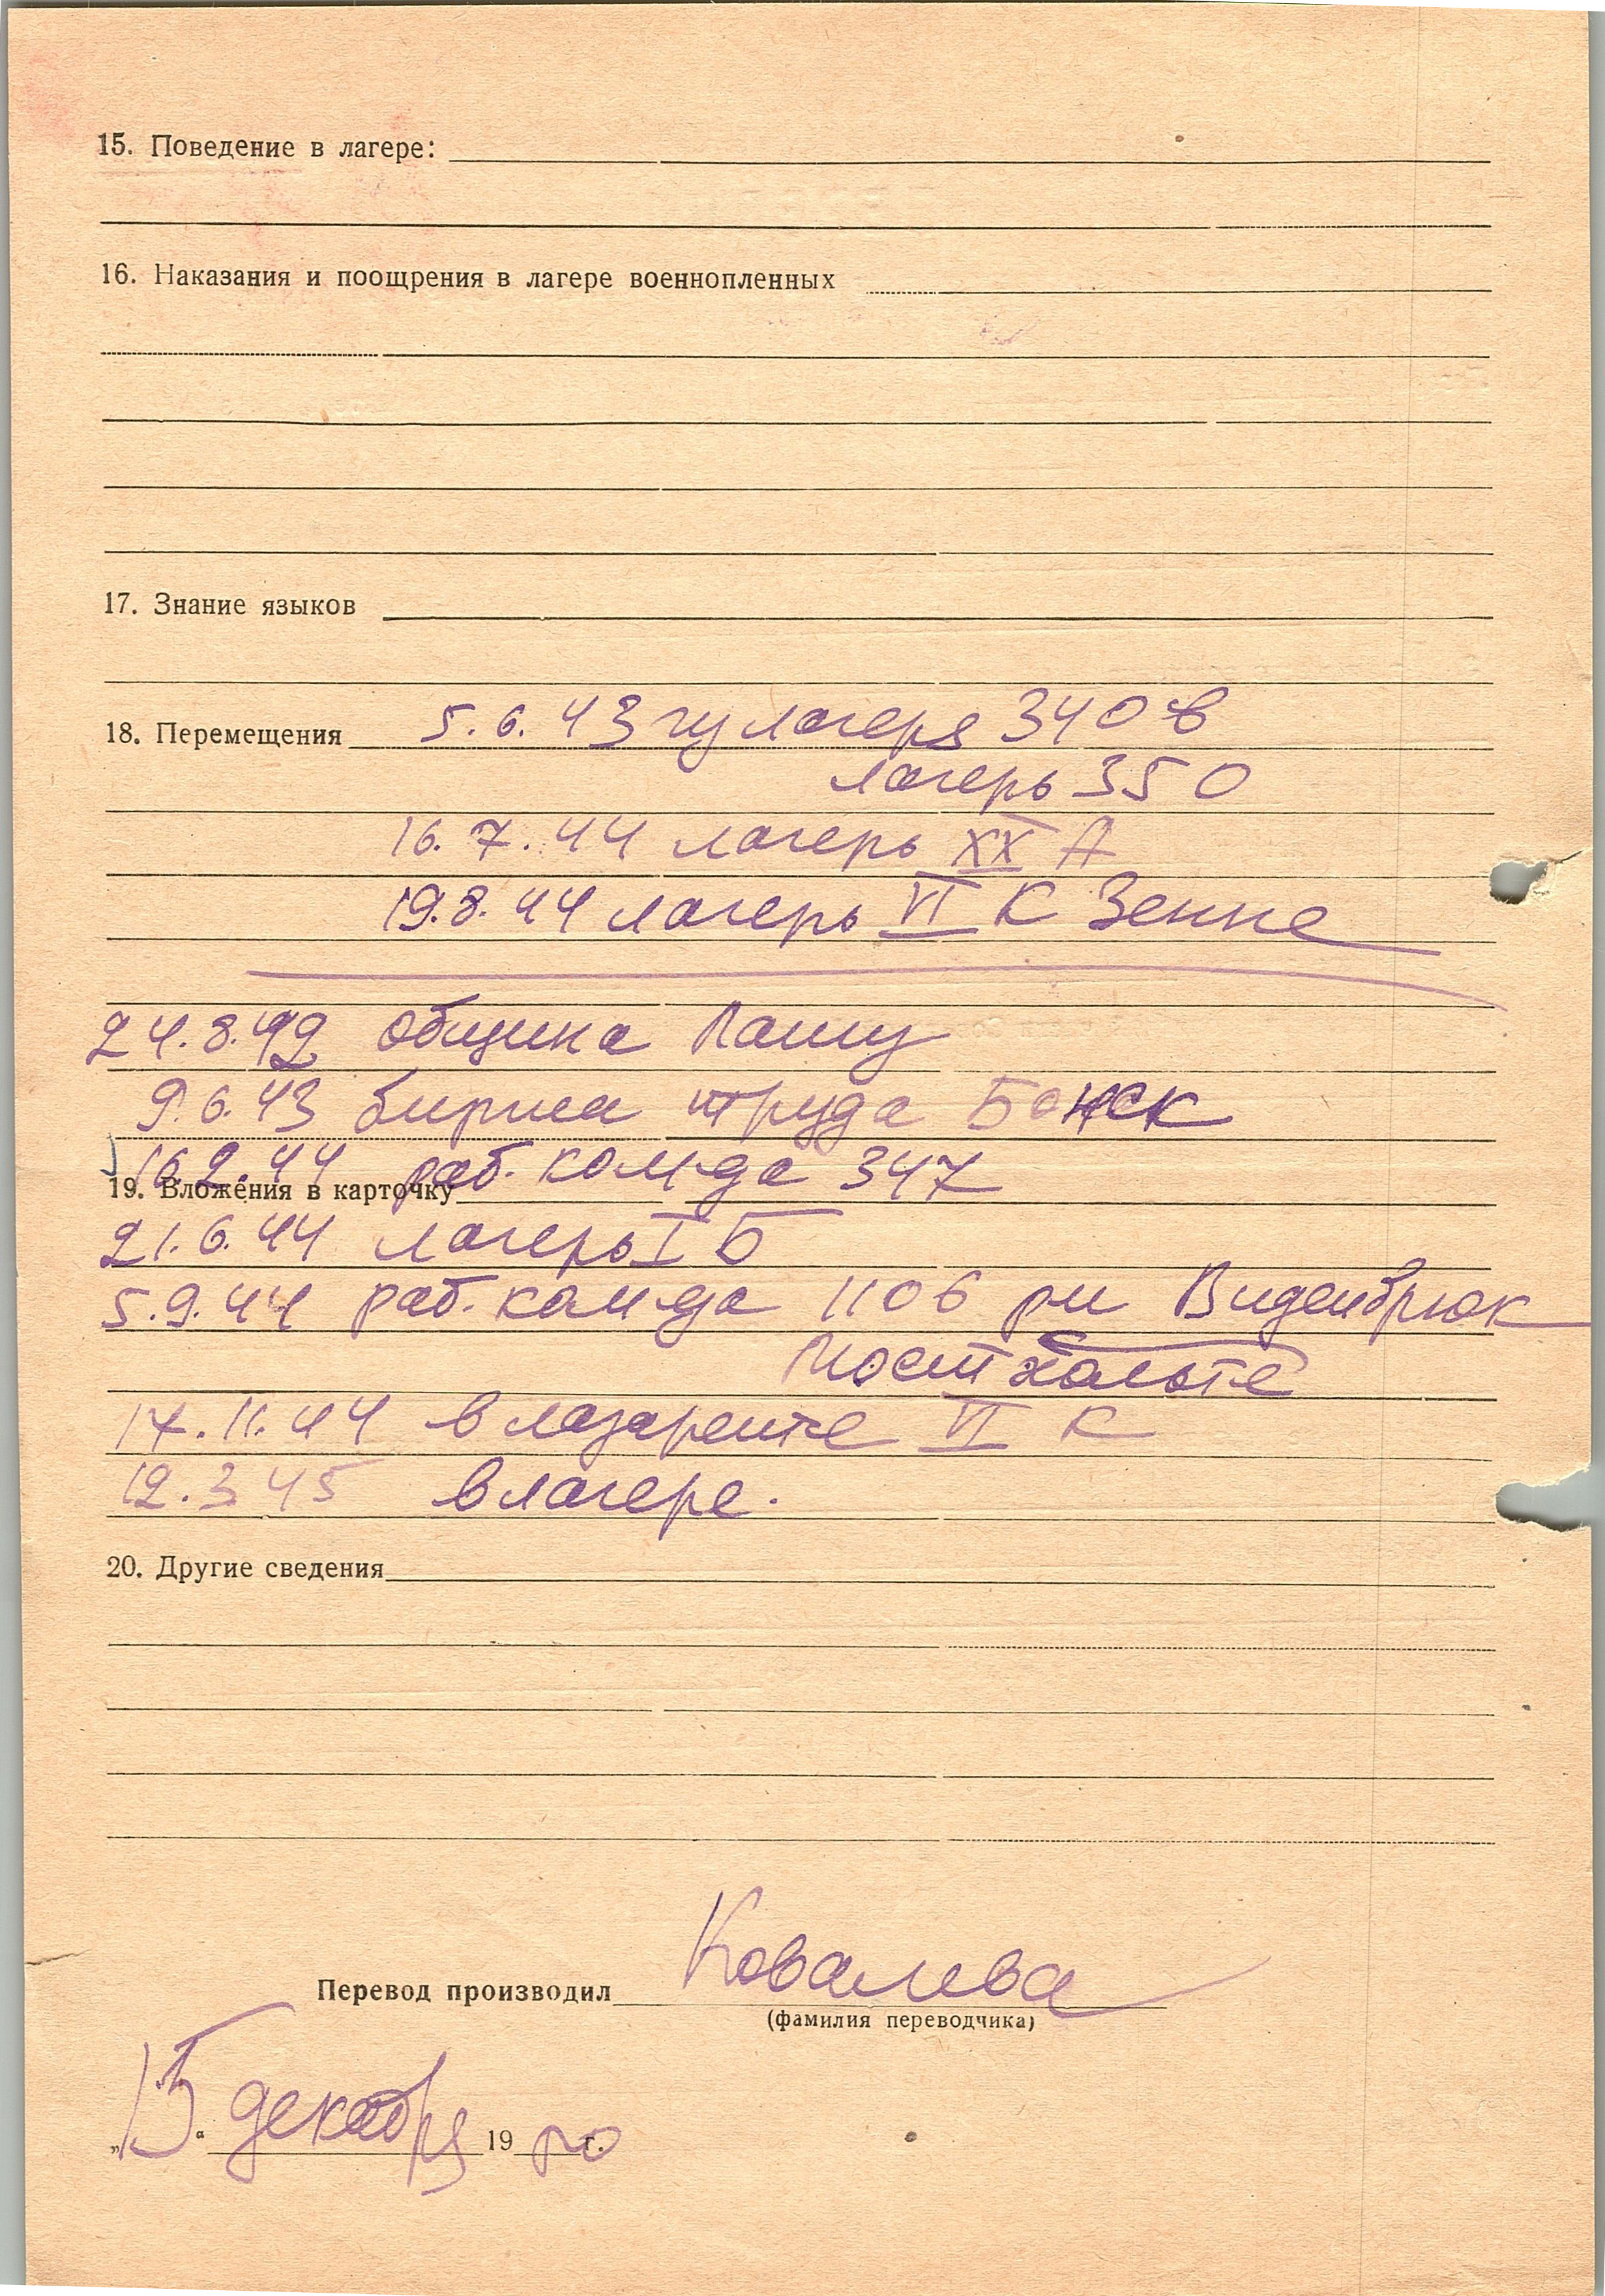 15. Поведение в лагере:
16. Наказания и поощрения в лагере военнопленных
17. Знание языков
18. Перемещения 5.6.43 из лагеря 340 в
лагерь 350
16.7.44 лагерь XX А
19.8.44 лагерь VI К Зенне
24.8.42 община
9.6.43 биржа труда
16.2.44 раб. ком-да 347
19. Вложения в карточку
21.6.44 лагерь I Б
5.9.44 раб. ком-да 1106 Виденбрюк
17.11.44 в лазарете VI К
12.3.45 в лагере.
20. Другие сведения
Перевод производил Ковалева
(фамилия переводчика)
„15“ декабря 19 г.